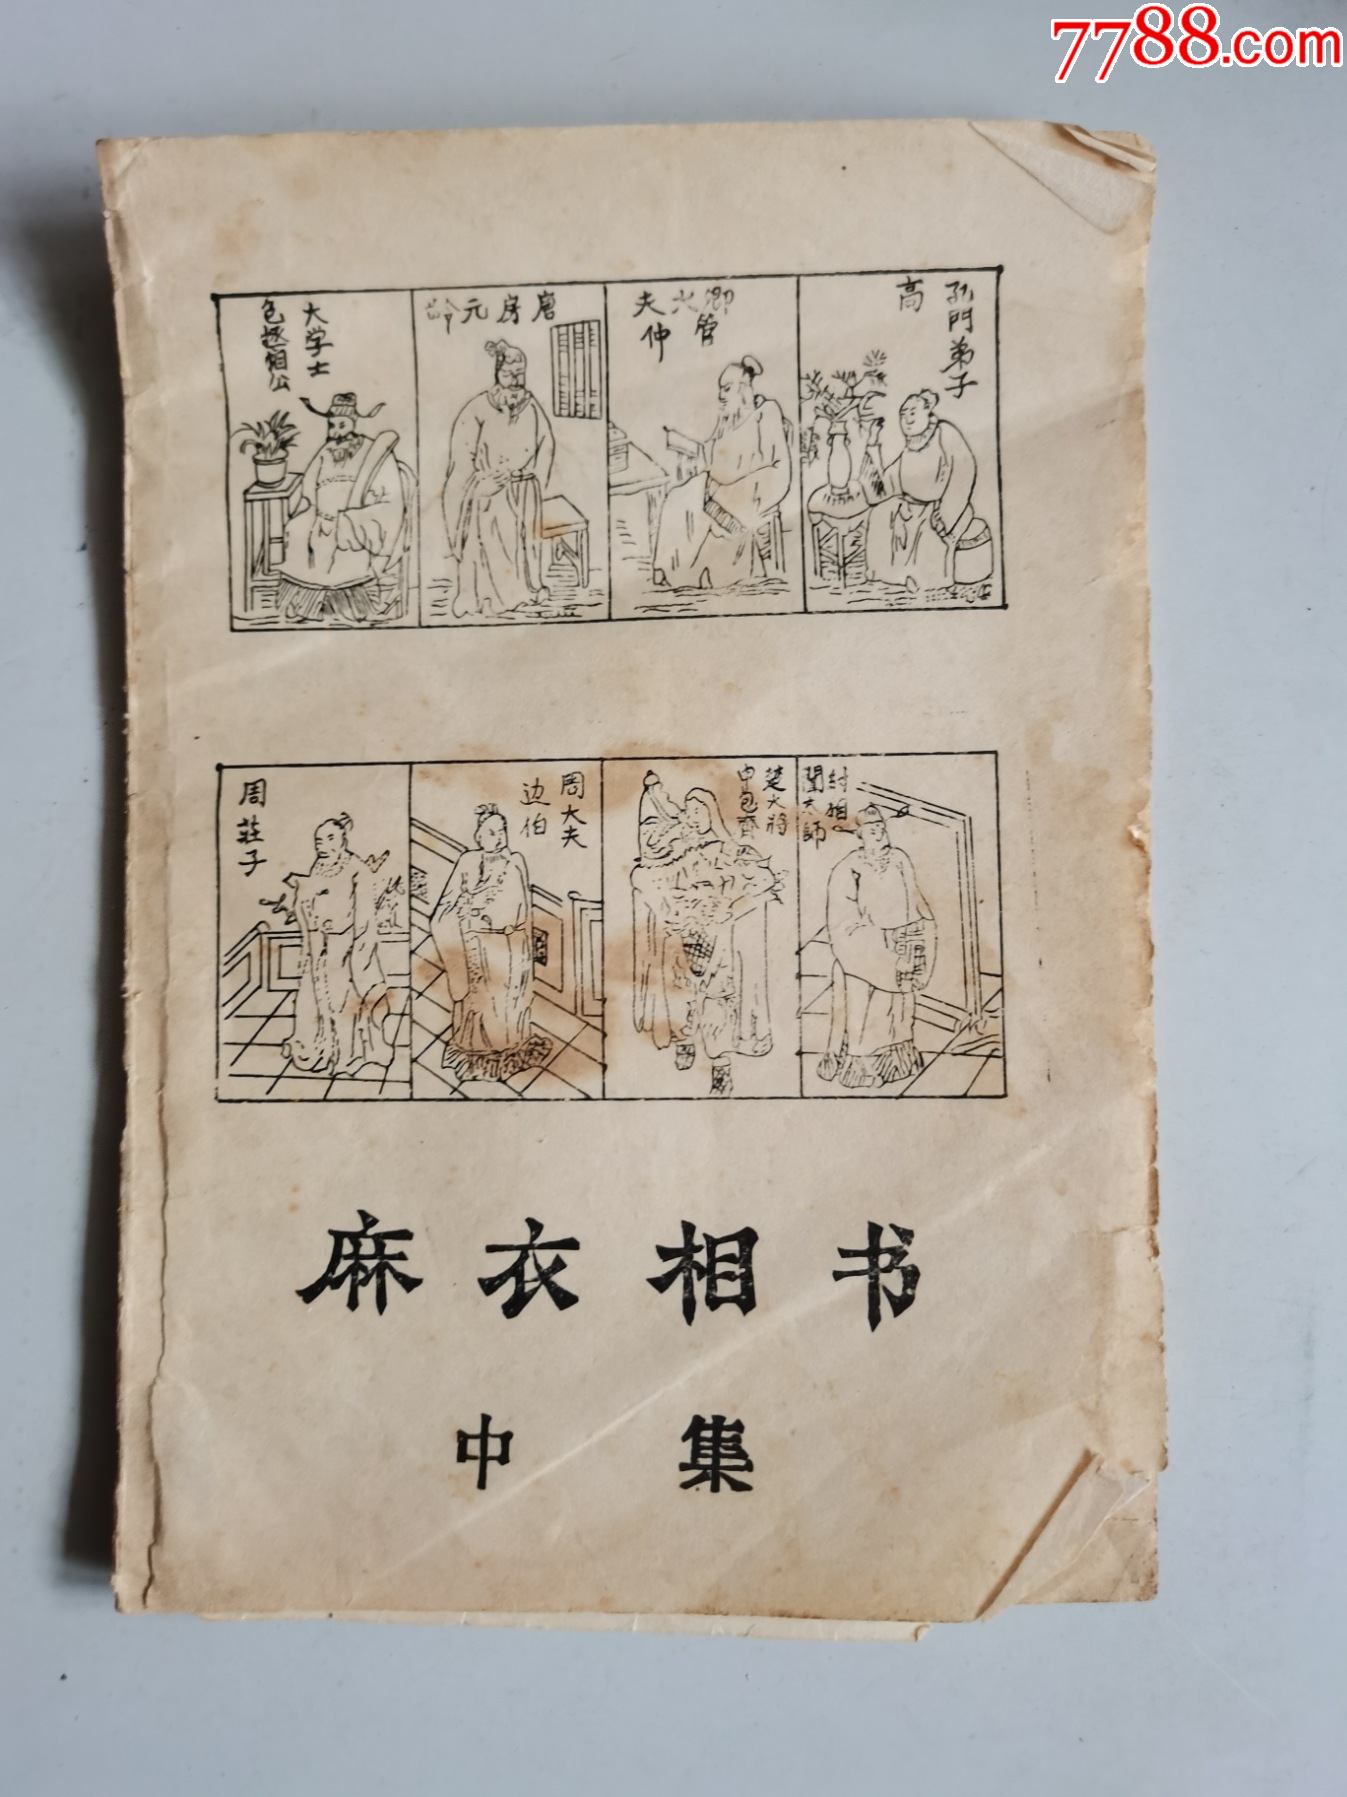 7788.com
孔門弟子
高
卿大夫
管仲
唐房元龄
大学士
包拯
公
紂相
聞太師
楚大將
申包胥
周大夫
边伯
周莊子
麻衣相书
中集